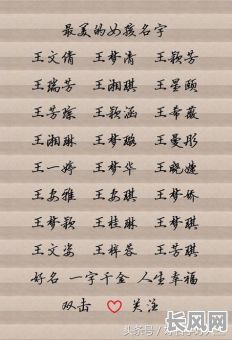 最美的女孩名字
王文倩 王梦清 王颖芳
王瑞芳 王湘琪 王星颐
王芳琮 王颖涵 王希薇
王湘琳 王梦璐 王曼彤
王一婷 王梦华 王晓婕
王安雅 王安琪 王梦娇
王梦颖 王桂琳 王梦琪
王文姿 王梓蓉 王芳琪
好名 一字千金 人生幸福
双击 关注
长风网